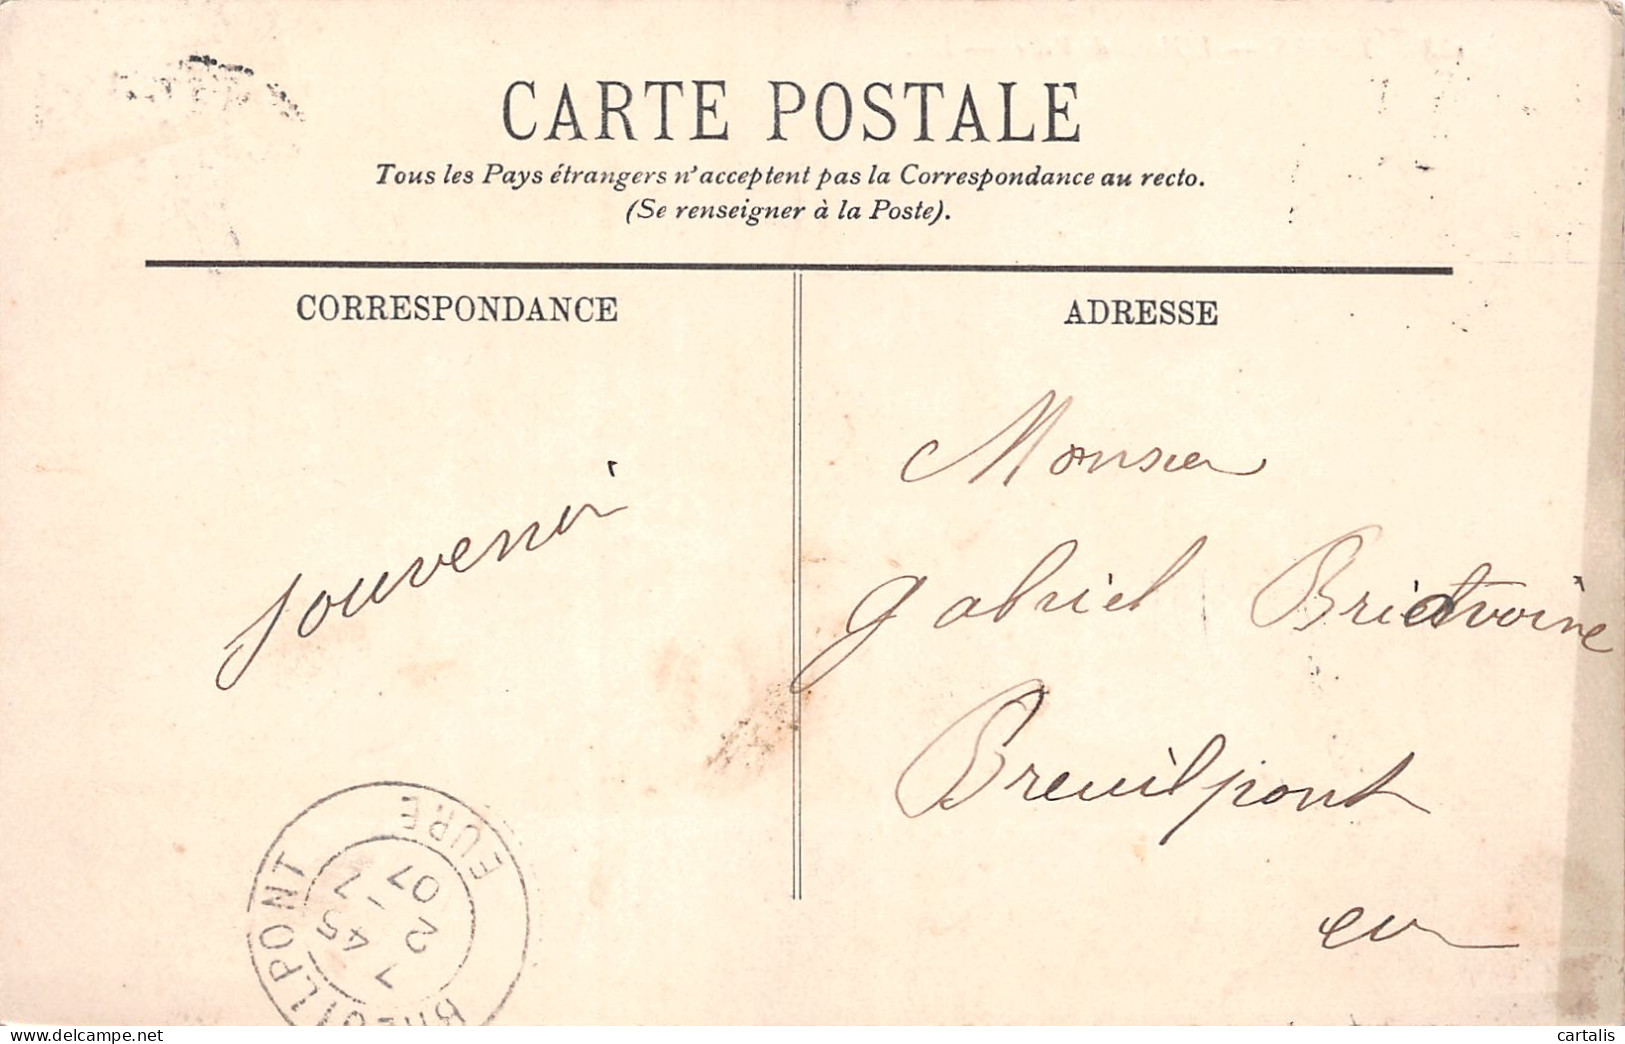 CARTE POSTALE
Tous les Pays étrangers n'acceptent pas la Correspondance au recto.
(Se renseigner à la Poste).
CORRESPONDANCE
ADRESSE
souvenir
Monsieu
Gabriel Briatvoine
Breuilpont
BREUILPONT
EURE
7 45
2 -7
07
cartalis